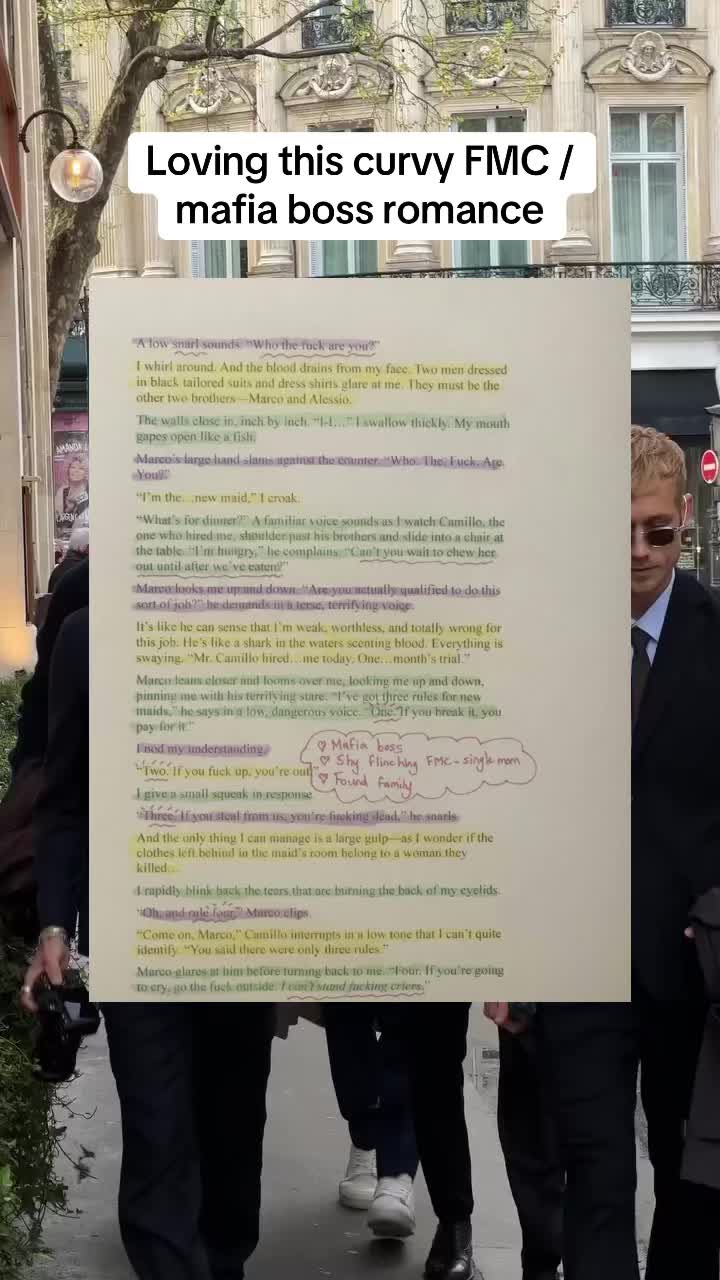 Loving this curvy FMC /
mafia boss romance
A low snarl sounds. “Who the fuck are you?”
I whirl around. And the blood drains from my face. Two men dressed
in black tailored suits and dress shirts glare at me. They must be the
other two brothers—Marco and Alessio.
The walls close in, inch by inch. “I-I…” I swallow thickly. My mouth
gapes open like a fish.
Marco’s large hand slams against the counter. “Who. The. Fuck. Are.
You?”
“I’m the…new maid,” I croak.
“What’s for dinner?” A familiar voice sounds as I watch Camillo, the
one who hired me, shoulder past his brothers and slide into a chair at
the table. “I’m hungry,” he complains. “Can’t you wait to chew her
out until after we’ve eaten?”
Marco looks me up and down. “Are you actually qualified to do this
sort of job?” he demands in a terse, terrifying voice.
It’s like he can sense that I’m weak, worthless, and totally wrong for
this job. He’s like a shark in the waters scenting blood. Everything is
swaying. “Mr. Camillo hired…me today. One…month’s trial.”
Marco leans closer and looms over me, looking me up and down,
pinning me with his terrifying stare. “I’ve got three rules for new
maids,” he says in a low, dangerous voice. “One. If you break it, you
pay for it.”
I nod my understanding.
“Two. If you fuck up, you’re out.”
♡ Mafia boss
♡ Shy flinching FMC - single mom
♡ Found family
I give a small squeak in response.
“Three. If you steal from us, you’re fucking dead,” he snarls.
And the only thing I can manage is a large gulp—as I wonder if the
clothes left behind in the maid’s room belong to a woman they
killed…
I rapidly blink back the tears that are burning the back of my eyelids.
“Oh, and rule four,” Marco clips.
“Come on, Marco,” Camillo interrupts in a low tone that I can’t quite
identify. “You said there were only three rules.”
Marco glares at him before turning back to me. “Four. If you’re going
to cry, go the fuck outside. I can’t stand fucking criers.”